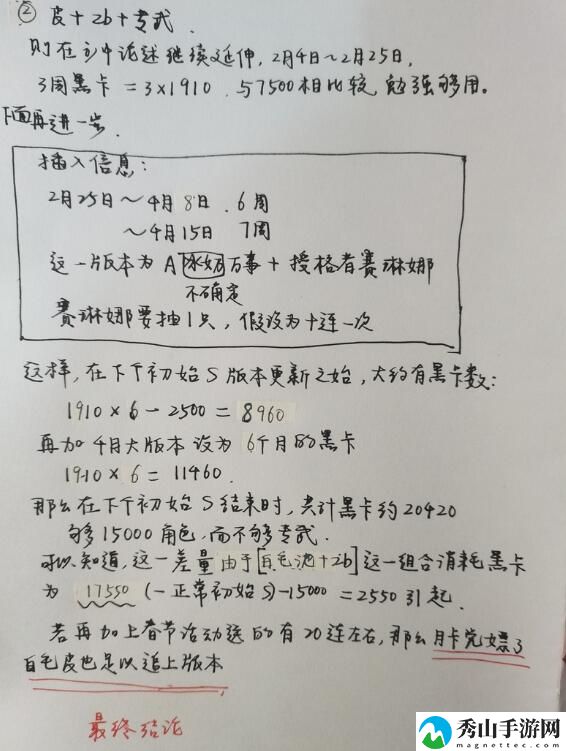 ② 皮+2b+专武.
则在①中论述继续延伸, 2月4日~2月25日,
3周黑卡 = 3×1910. 与7500相比较, 勉强够用。
下面再进一步.
插入信息:
2月25日~4月8日. 6周
~4月15日 7周
这一版本为A 冰奶 万事+授格者赛琳娜
不确定
赛琳娜要抽1只, 假设为十连一次
这样, 在下个初始S版本更新之始, 大约有黑卡数:
1910×6-2500=8960
再加4月大版本 设为 6个月的黑卡
1910×6=11460.
那么在下个初始S结束时, 共计黑卡约20420
够15000角色, 而不够专武.
可以知道, 这一差量由于[白毛池+2b]这一组合消耗黑卡
为 17550 (一正常初始S)-15000=2550引起.
若再加上春节活动送的有20连左右, 那么月卡党嫖了
白毛皮也足以追上版本
最终结论
秀山手游网
magnettec.com